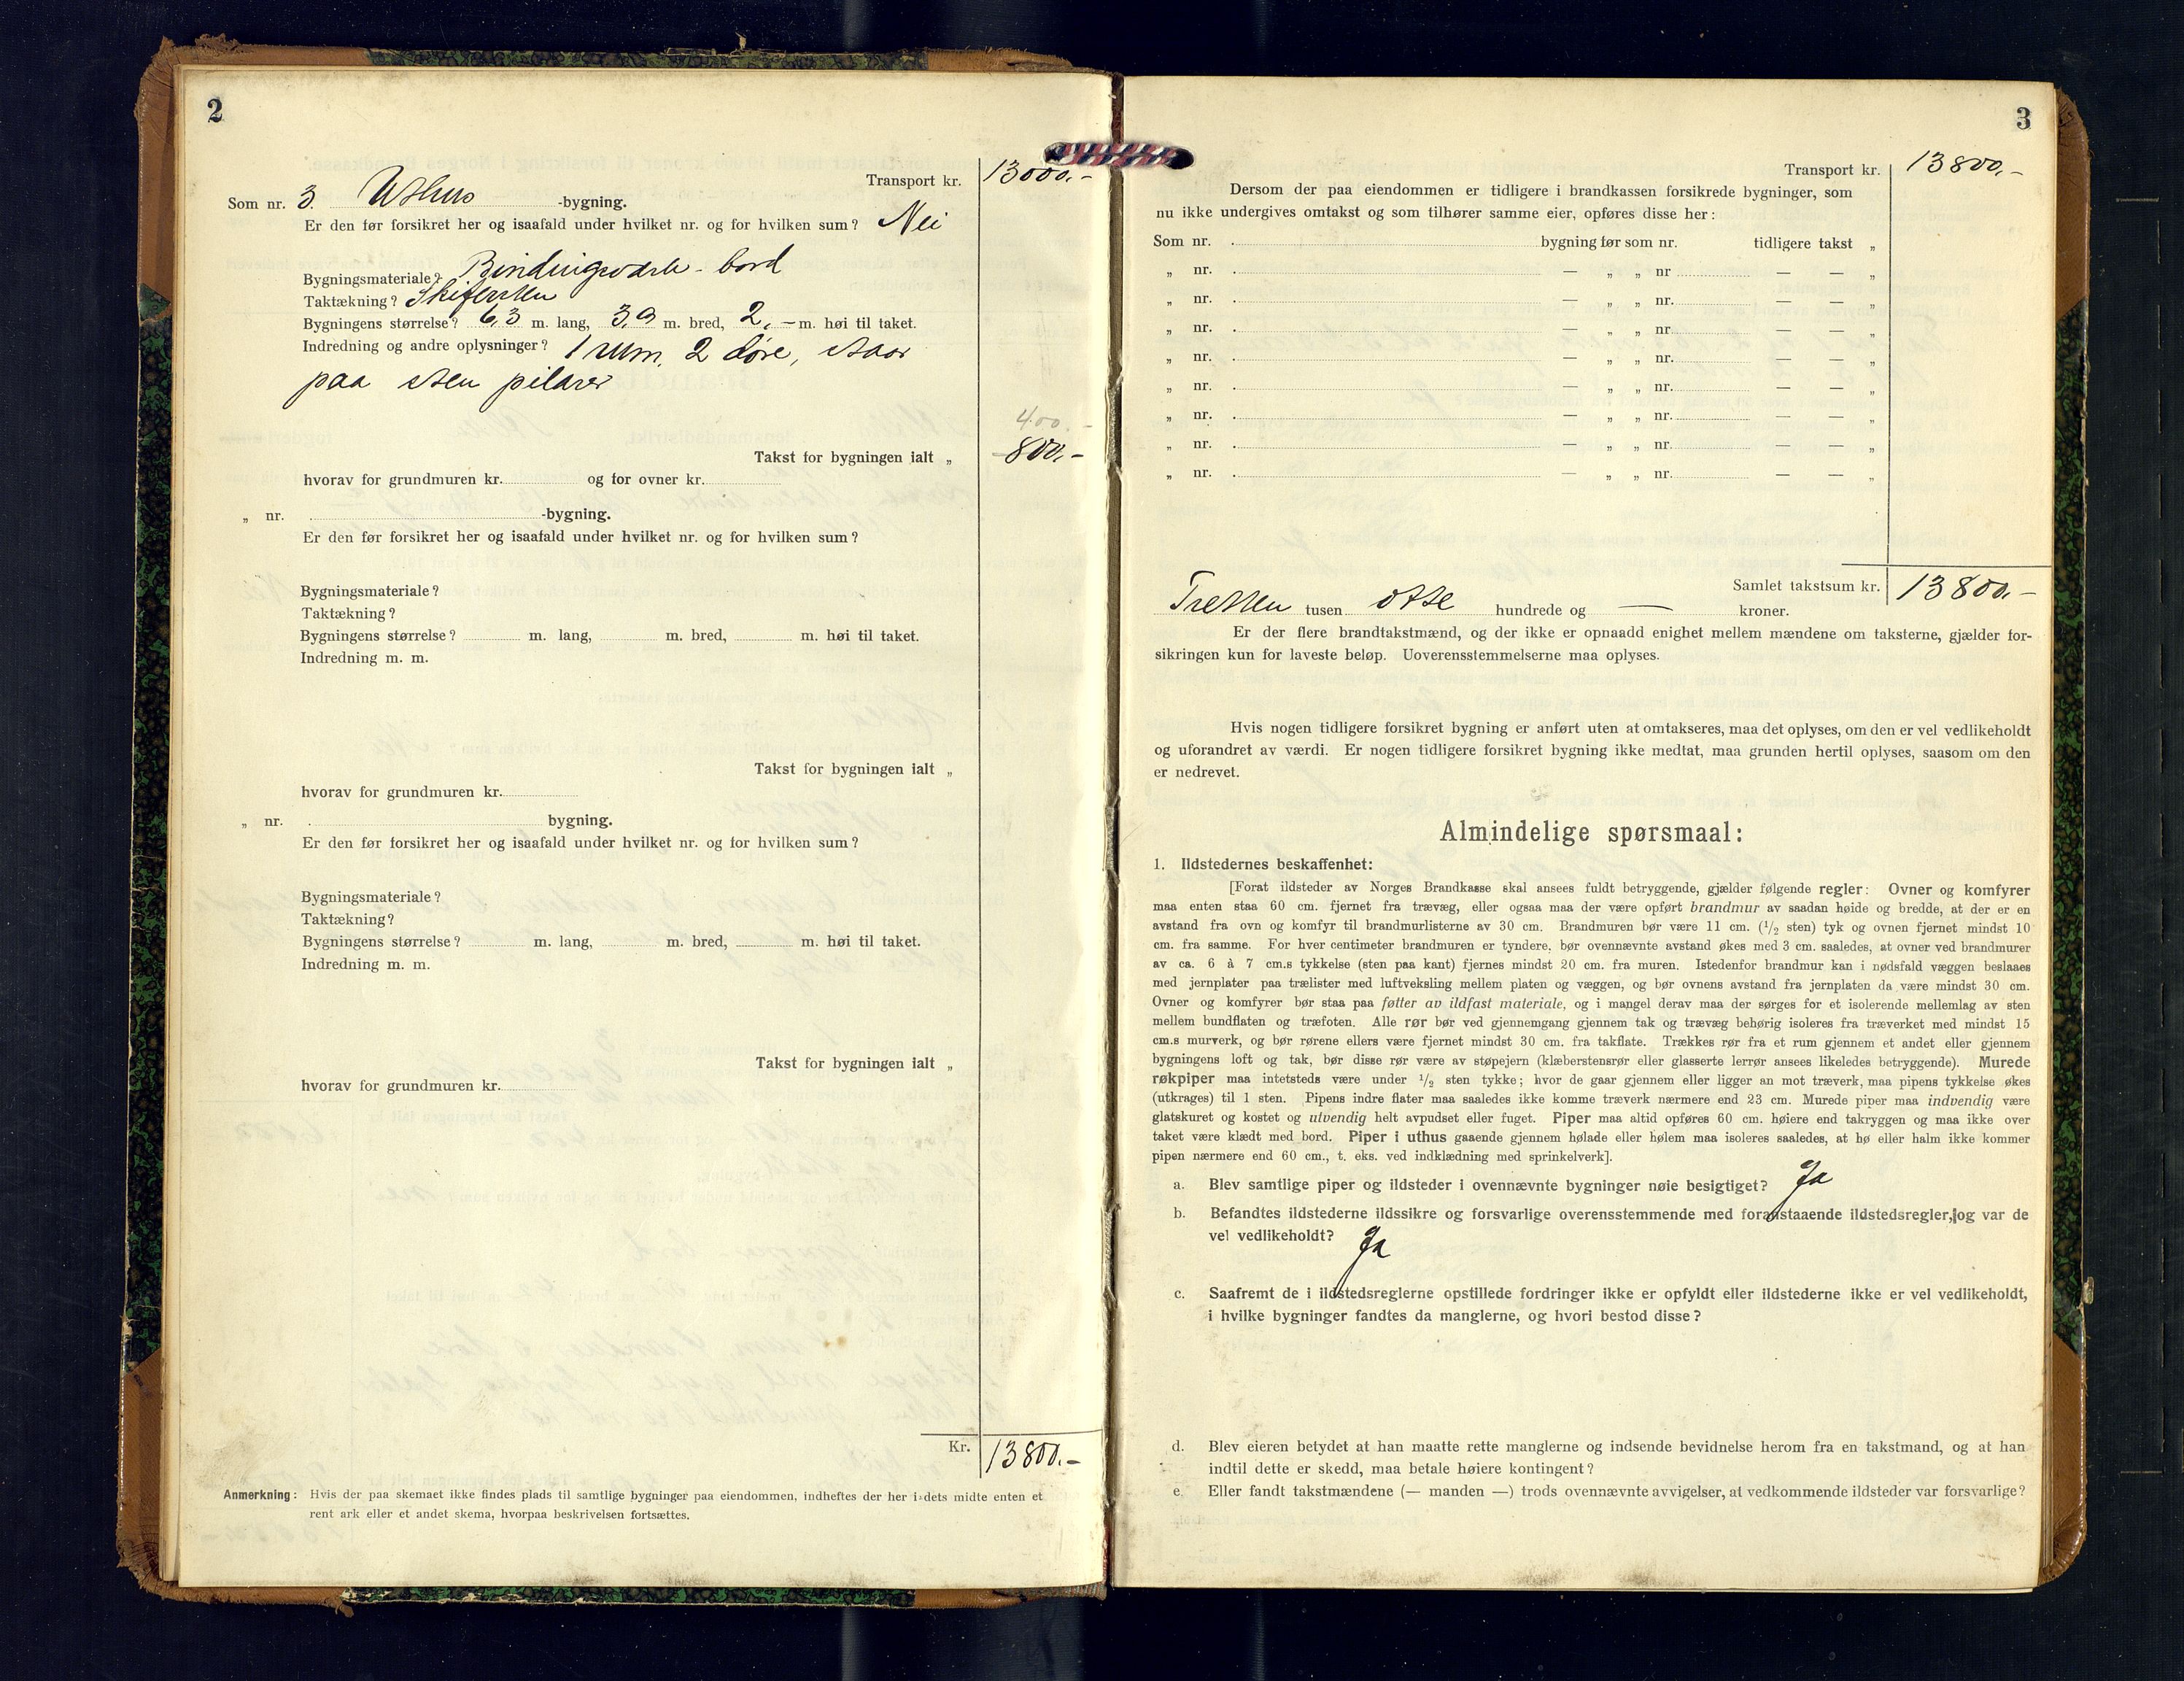 2
Transport kr. 13000.-
Som nr. 3. Uthus -bygning.
Er den før forsikret her og isaafald under hvilket nr. og for hvilken sum? Nei
Bygningsmateriale? Bindingsværk - bord
Taktækning? Skifersten
Bygningens størrelse? 6,3 m. lang, 3,9 m. bred, 2,- m. høi til taket.
Indredning og andre oplysninger? 1 rum, 2 døre, staar
paa sten pilarer
400.-
Takst for bygningen ialt „ 800.-
hvorav for grundmuren kr. og for ovner kr.
„ nr. -bygning.
Er den før forsikret her og isaafald under hvilket nr. og for hvilken sum?
Bygningsmateriale?
Taktækning?
Bygningens størrelse? m. lang, m. bred, m. høi til taket.
Indredning m. m.
Takst for bygningen ialt „
hvorav for grundmuren kr.
„ nr. bygning.
Er den før forsikret her og isaafald under hvilket nr. og for hvilken sum?
Bygningsmateriale?
Taktækning?
Bygningens størrelse? m. lang, m. bred, m. høi til taket.
Indredning m. m.
Takst for bygningen ialt „
hvorav for grundmuren kr.
Kr. 13800.-
Anmerkning: Hvis der paa skemaet ikke findes plads til samtlige bygninger paa eiendommen, indheftes der her i dets midte enten et
rent ark eller et andet skema, hvorpaa beskrivelsen fortsættes.
3
Transport kr. 13800.-
Dersom der paa eiendommen er tidligere i brandkassen forsikrede bygninger, som
nu ikke undergives omtakst og som tilhører samme eier, opføres disse her:
Som nr. bygning før som nr. tidligere takst „
„ nr. — „ „ nr — — „
„ nr. — „ „ nr. — — „
„ nr. — „ „ nr. — — „
„ nr. — „ „ nr. — — „
„ nr. — „ „ nr. — — „
„ nr. — „ „ nr. — — „
„ nr. — „ „ nr. — — „
„ nr. — „ „ nr. — — „
Samlet takstsum kr. 13800.-
Tretten tusen otte hundrede og — kroner.
Er der flere brandtakstmænd, og der ikke er opnaadd enighet mellem mændene om taksterne, gjælder for-
sikringen kun for laveste beløp. Uoverensstemmelserne maa oplyses.
Hvis nogen tidligere forsikret bygning er anført uten at omtakseres, maa det oplyses, om den er vel vedlikeholdt
og uforandret av værdi. Er nogen tidligere forsikret bygning ikke medtat, maa grunden hertil oplyses, saasom om den
er nedrevet.
Almindelige spørsmaal:
1. Ildstedernes beskaffenhet:
[Forat ildsteder av Norges Brandkasse skal ansees fuldt betryggende, gjælder følgende regler: Ovner og komfyrer
maa enten staa 60 cm. fjernet fra trævæg, eller ogsaa maa der være opført brandmur av saadan høide og bredde, at der er en
avstand fra ovn og komfyr til brandmurlisterne av 30 cm. Brandmuren bør være 11 cm. (1/2 sten) tyk og ovnen fjernet mindst 10
cm. fra samme. For hver centimeter brandmuren er tyndere, bør ovennævnte avstand økes med 3 cm. saaledes, at ovner ved brandmurer
av ca. 6 à 7 cm.s tykkelse (sten paa kant) fjernes mindst 20 cm. fra muren. Istedenfor brandmur kan i nødsfald væggen beslaaes
med jernplater paa trælister med luftveksling mellem platen og væggen, og bør ovnens avstand fra jernplaten da være mindst 30 cm.
Ovner og komfyrer bør staa paa føtter av ildfast materiale, og i mangel derav maa der sørges for et isolerende mellemlag av sten
mellem bundflaten og træfoten. Alle rør bør ved gjennemgang gjennem tak og trævæg behørig isoleres fra træverket med mindst 15
cm.s murverk, og bør rørene ellers være fjernet mindst 30 cm. fra takflate. Trækkes rør fra et rum gjennem et andet eller gjennem
bygningens loft og tak, bør disse rør være av støpejern (klæberstensrør eller glasserte lerrør ansees likeledes betryggende). Murede
røkpiper maa intetsteds være under 1/2 sten tykke; hvor de gaar gjennem eller ligger an mot træverk, maa pipens tykkelse økes
(utkrages) til 1 sten. Pipens indre flater maa saaledes ikke komme træverk nærmere end 23 cm. Murede piper maa indvendig være
glatskuret og kostet og utvendig helt avpudset eller fuget. Piper maa altid opføres 60 cm. høiere end takryggen og maa ikke over
taket være klædt med bord. Piper i uthus gaaende gjennem hølade eller hølem maa isoleres saaledes, at hø eller halm ikke kommer
pipen nærmere end 60 cm., t. eks. ved indklædning med sprinkelverk].
a. Blev samtlige piper og ildsteder i ovennævnte bygninger nøie besigtiget? Ja
b. Befandtes ildstederne ildssikre og forsvarlige overensstemmende med foranstaaende ildstedsregler, og var de
vel vedlikeholdt? Ja
c. Saafremt de i ildstedsreglerne opstillede fordringer ikke er opfyldt eller ildstederne ikke er vel vedlikeholdt,
i hvilke bygninger fandtes da manglerne, og hvori bestod disse?
d. Blev eieren betydet at han maatte rette manglerne og indsende bevidnelse herom fra en takstmand, og at han
indtil dette er skedd, maa betale høiere kontingent?
e. Eller fandt takstmændene (— manden —) trods ovennævnte avvigelser, at vedkommende ildsteder var forsvarlige?